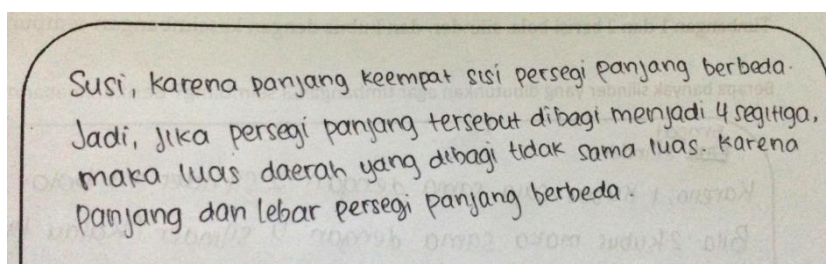 Susi, karena panjang keempat sisi persegi panjang berbeda.
Jadi, jika persegi panjang tersebut dibagi menjadi 4 segitiga,
maka luas daerah yang dibagi tidak sama luas. Karena
panjang dan lebar persegi panjang berbeda.